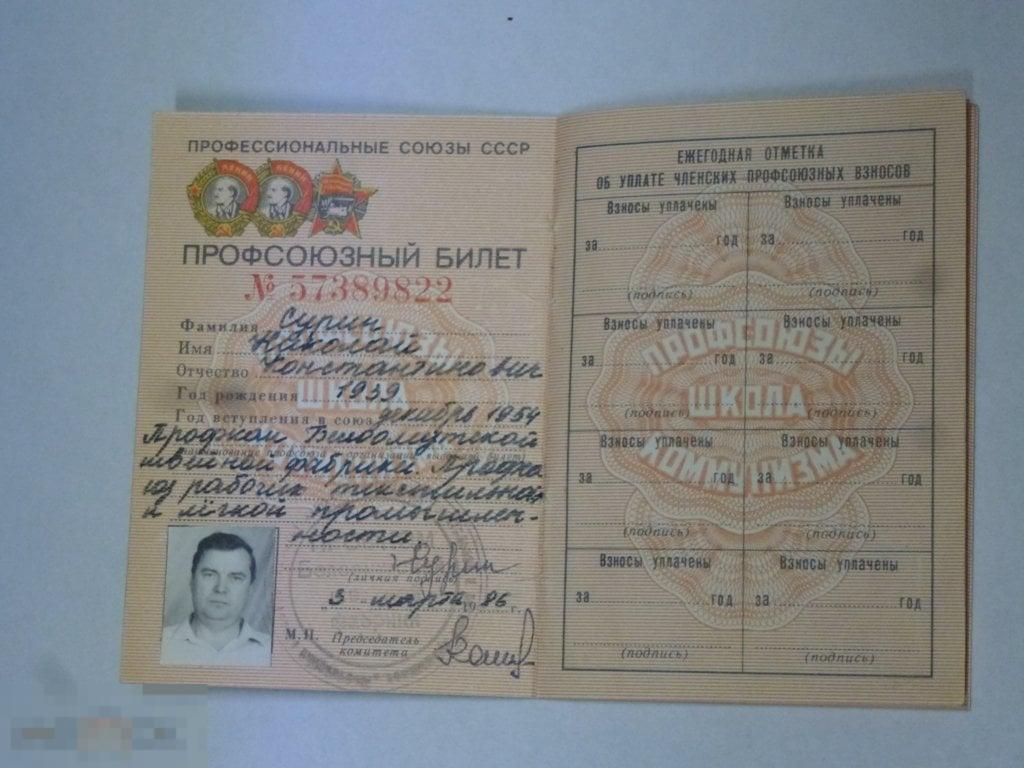 ПРОФЕССИОНАЛЬНЫЕ СОЮЗЫ СССР
ПРОФСОЮЗНЫЙ БИЛЕТ
№ 57389822
Фамилия Сурин
Имя Николай
Отчество Константинович
Год рождения 1939
Год вступления в союз декабрь 1954
Профком Белоомутской
швейной фабрики. Профсо
юз рабочих текстильной
и лёгкой промышлен-
ности.
(личная подпись)
3 марта 1986 г.
М.П. Председатель
комитета
ПРОФСОЮЗЫ
ШКОЛА
ЕЖЕГОДНАЯ ОТМЕТКА
ОБ УПЛАТЕ ЧЛЕНСКИХ ПРОФСОЮЗНЫХ ВЗНОСОВ
Взносы уплачены Взносы уплачены
за год за год
(подпись) (подпись)
Взносы уплачены Взносы уплачены
за год за год
(подпись) (подпись)
Взносы уплачены Взносы уплачены
за год за год
(подпись) (подпись)
Взносы уплачены Взносы уплачены
за год за год
(подпись) (подпись)
ПРОФСОЮЗЫ
ШКОЛА
КОММУНИЗМА